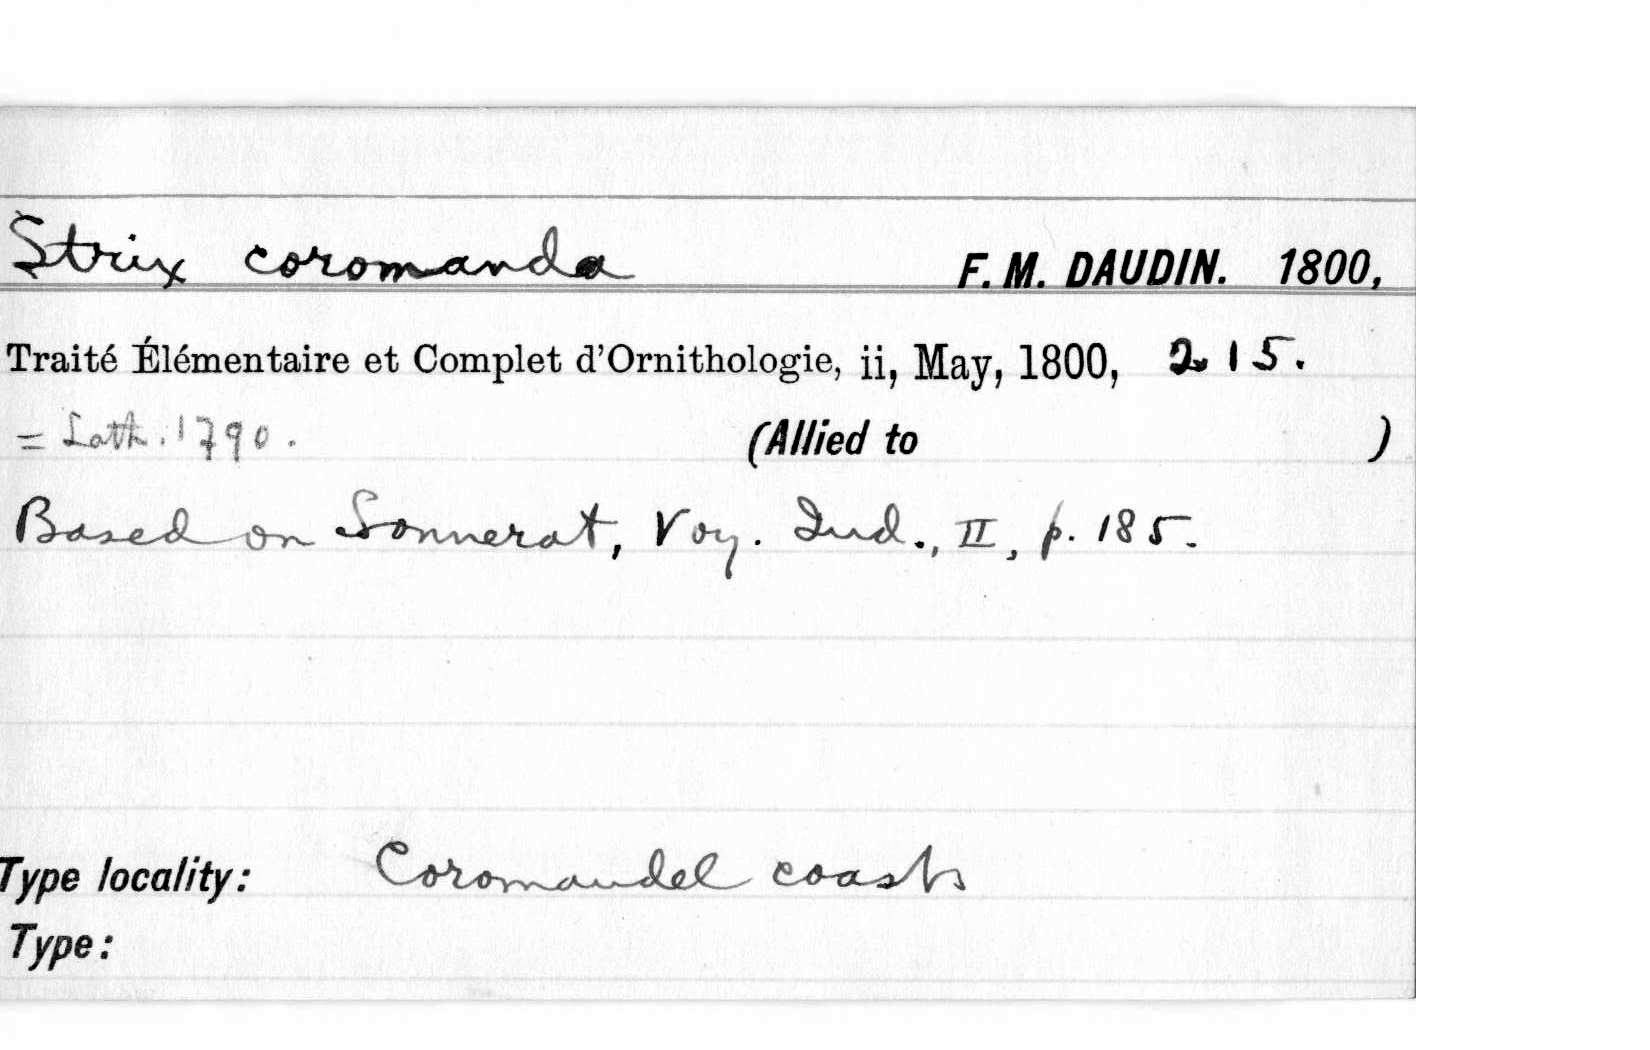 Strix coromanda F. M. DAUDIN. 1800,
Traité Élémentaire et Complet d'Ornithologie, ii, May, 1800, 215.
= Lath. 1790. (Allied to )
Based on Sonnerat, Voy. Ind., II, p. 185.
Type locality: Coromandel coasts
Type: